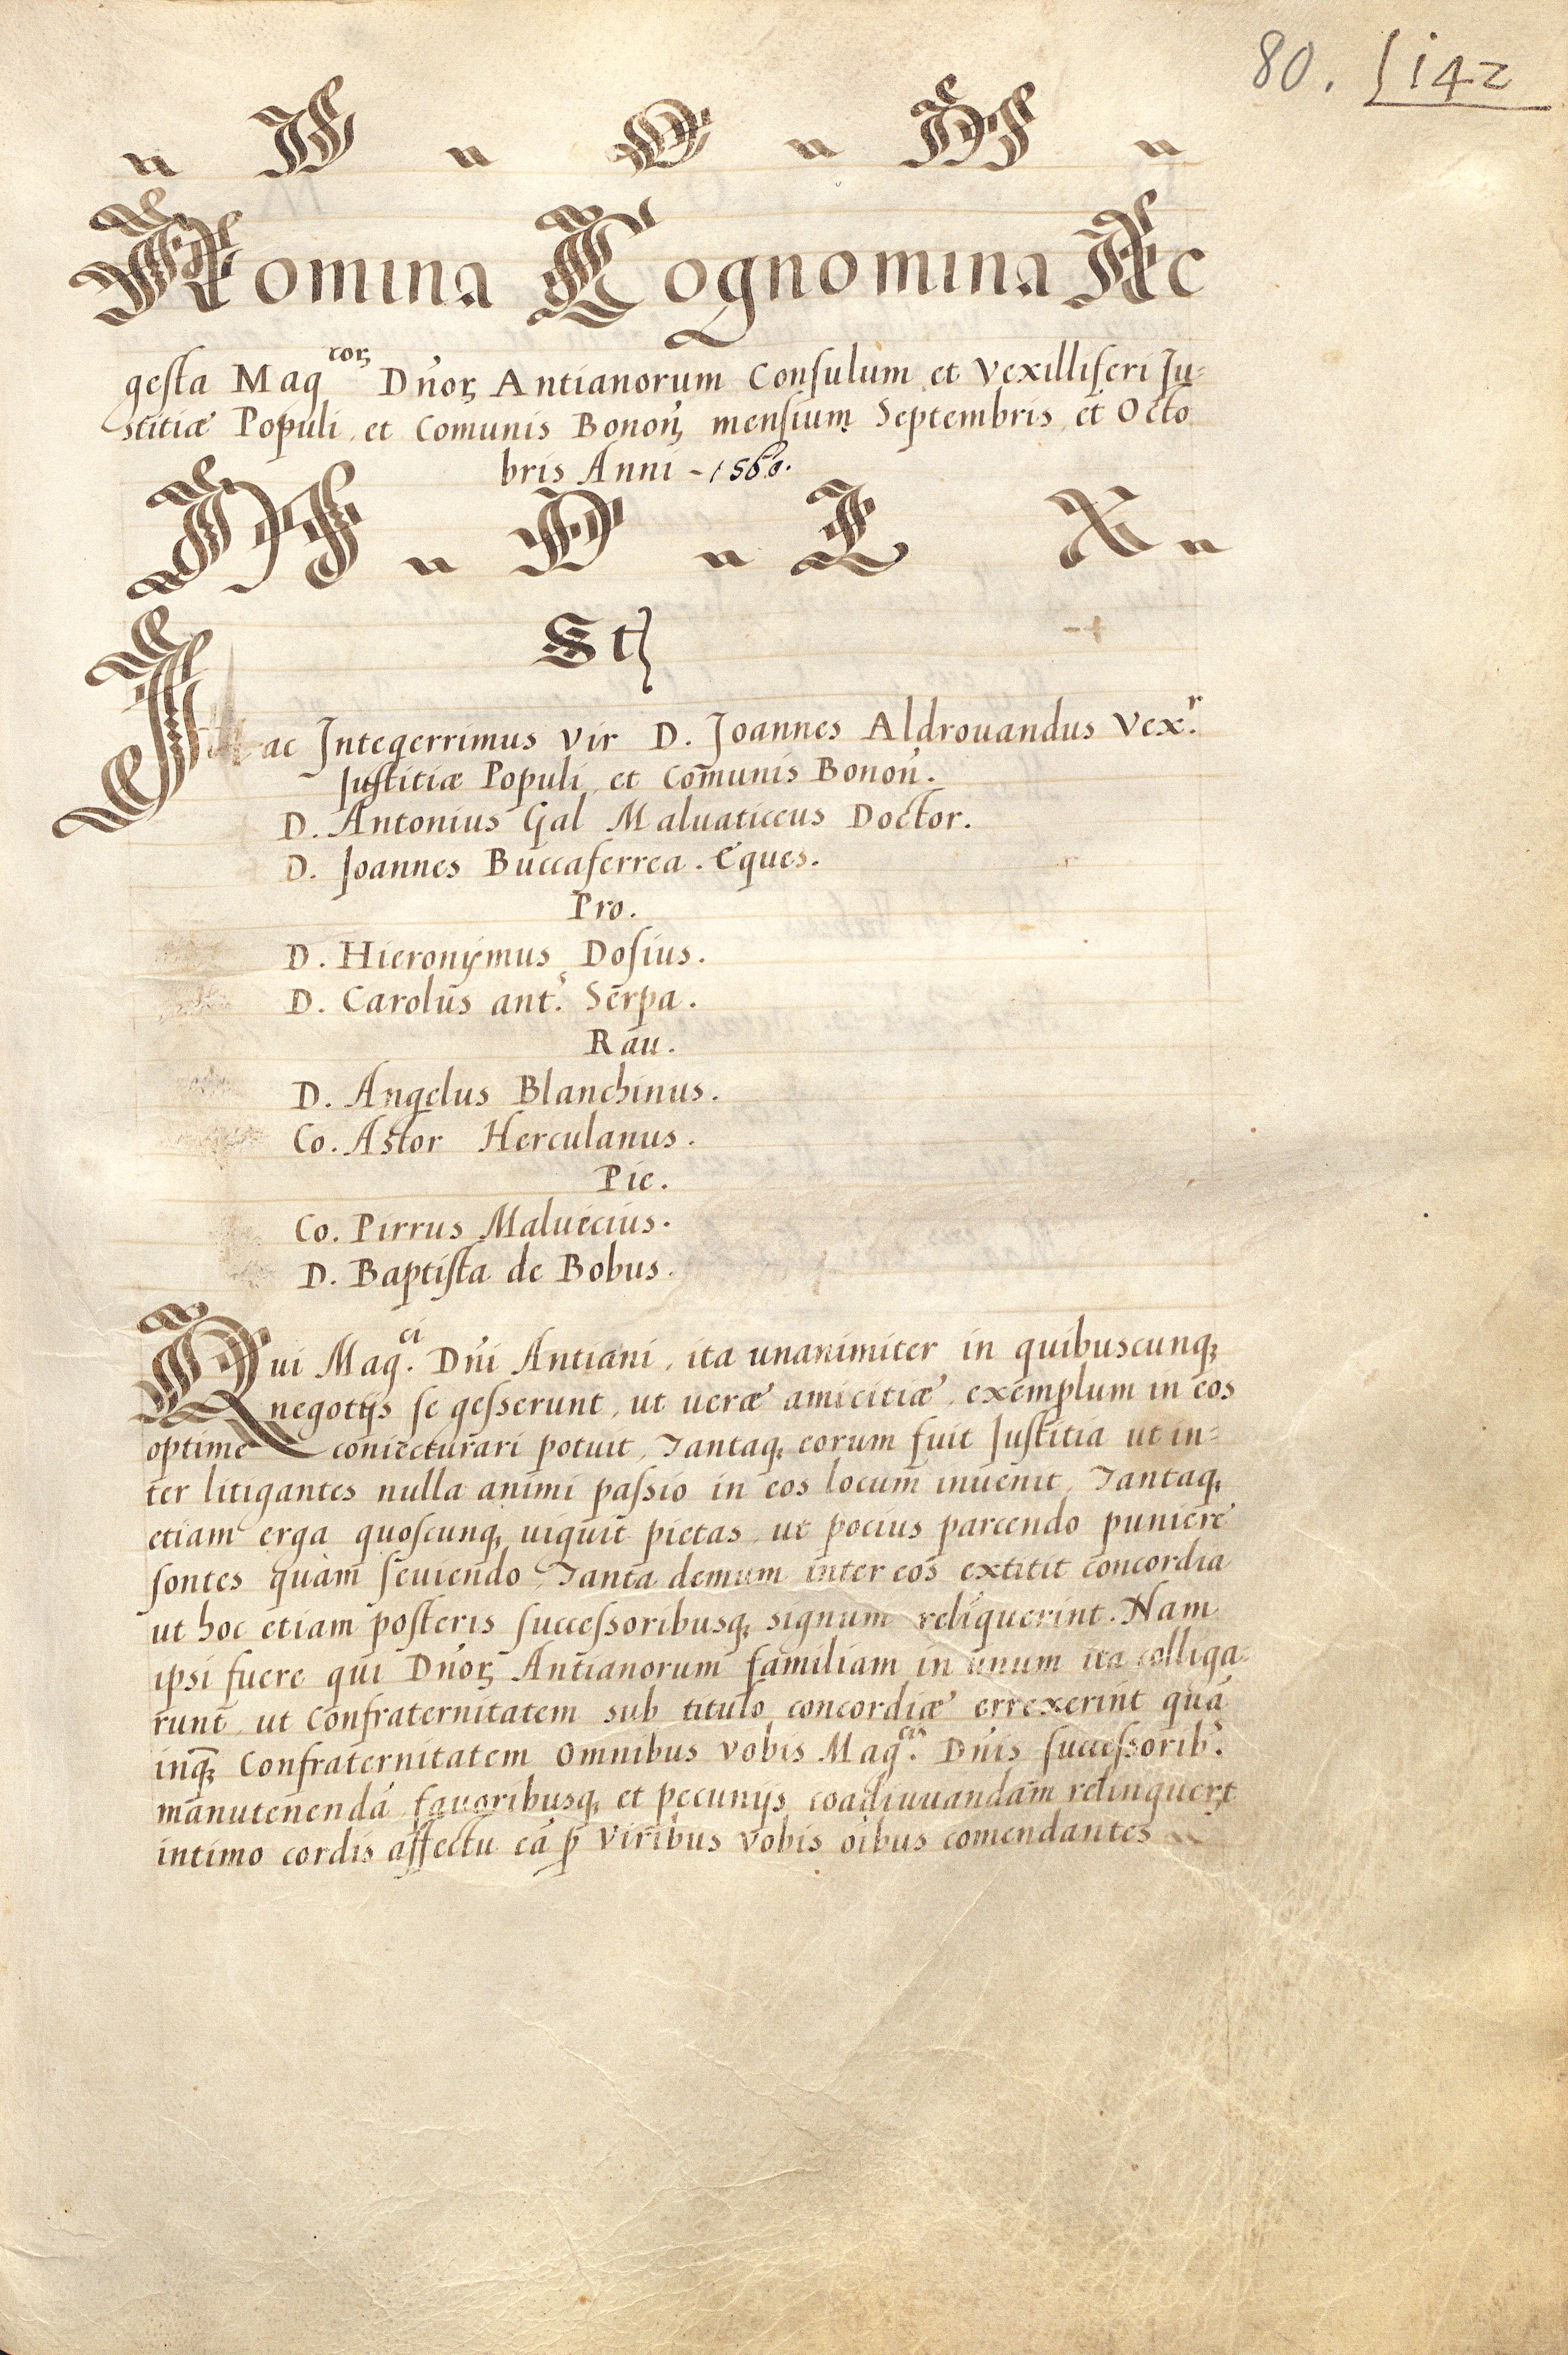 80. 142
D O M
Nomina Cognomina Ac
gesta Mag^cor. Dn̄or. Antianorum Consulum et Vexilliferi Ju=
stitiæ Populi et Comunis Bonon̄. mensium Septembris et Octo
bris Anni - 1560.
M D L X
Et
ac Integerrimus Vir D. Joannes Aldrouandus Vex.^r
Justitiæ Populi et Com̄unis Bonon̄.
D. Antonius Gal Maluaticcus Doctor.
D. Joannes Buccaferrea. Eques.
Pro.
D. Hieronÿmus Dosius.
D. Carolus ant.^s Serpa.
Rau.
D. Angelus Blanchinus.
Co. Astor Herculanus.
Pie.
Co. Pirrus Maluecius.
D. Baptista de Bobus.
Qui Mag.^ci Dn̄i Antiani, ita unanimiter in quibuscunq;
negotijs se gesserunt, ut ueræ amicitiæ exemplum in eos
optime coniecturari potuit, Tantaq; eorum fuit Justitia ut in=
ter litigantes nulla animi passio in eos locum inuenit, Tantaq;
etiam erga quoscunq; uiguit pietas ut pocius parcendo puniere
sontes quàm seuiendo, Tanta demum inter eos extitit concordia
ut hoc etiam posteris successoribusq; signum reliquerint. Nam
ipsi fuere qui Dn̄or. Antianorum familiam in unum ita colliga=
runt ut Confraternitatem sub titulo concordiæ errexerint quā
inq; Confraternitatem Omnibus vobis Mag.^cis Dn̄is successorib.^s
manutenendā fauoribusq; et pecunijs coadiuuandam relinquer̄t
intimo cordis affectu eā p̱ Viribus vobis oībus comendantes